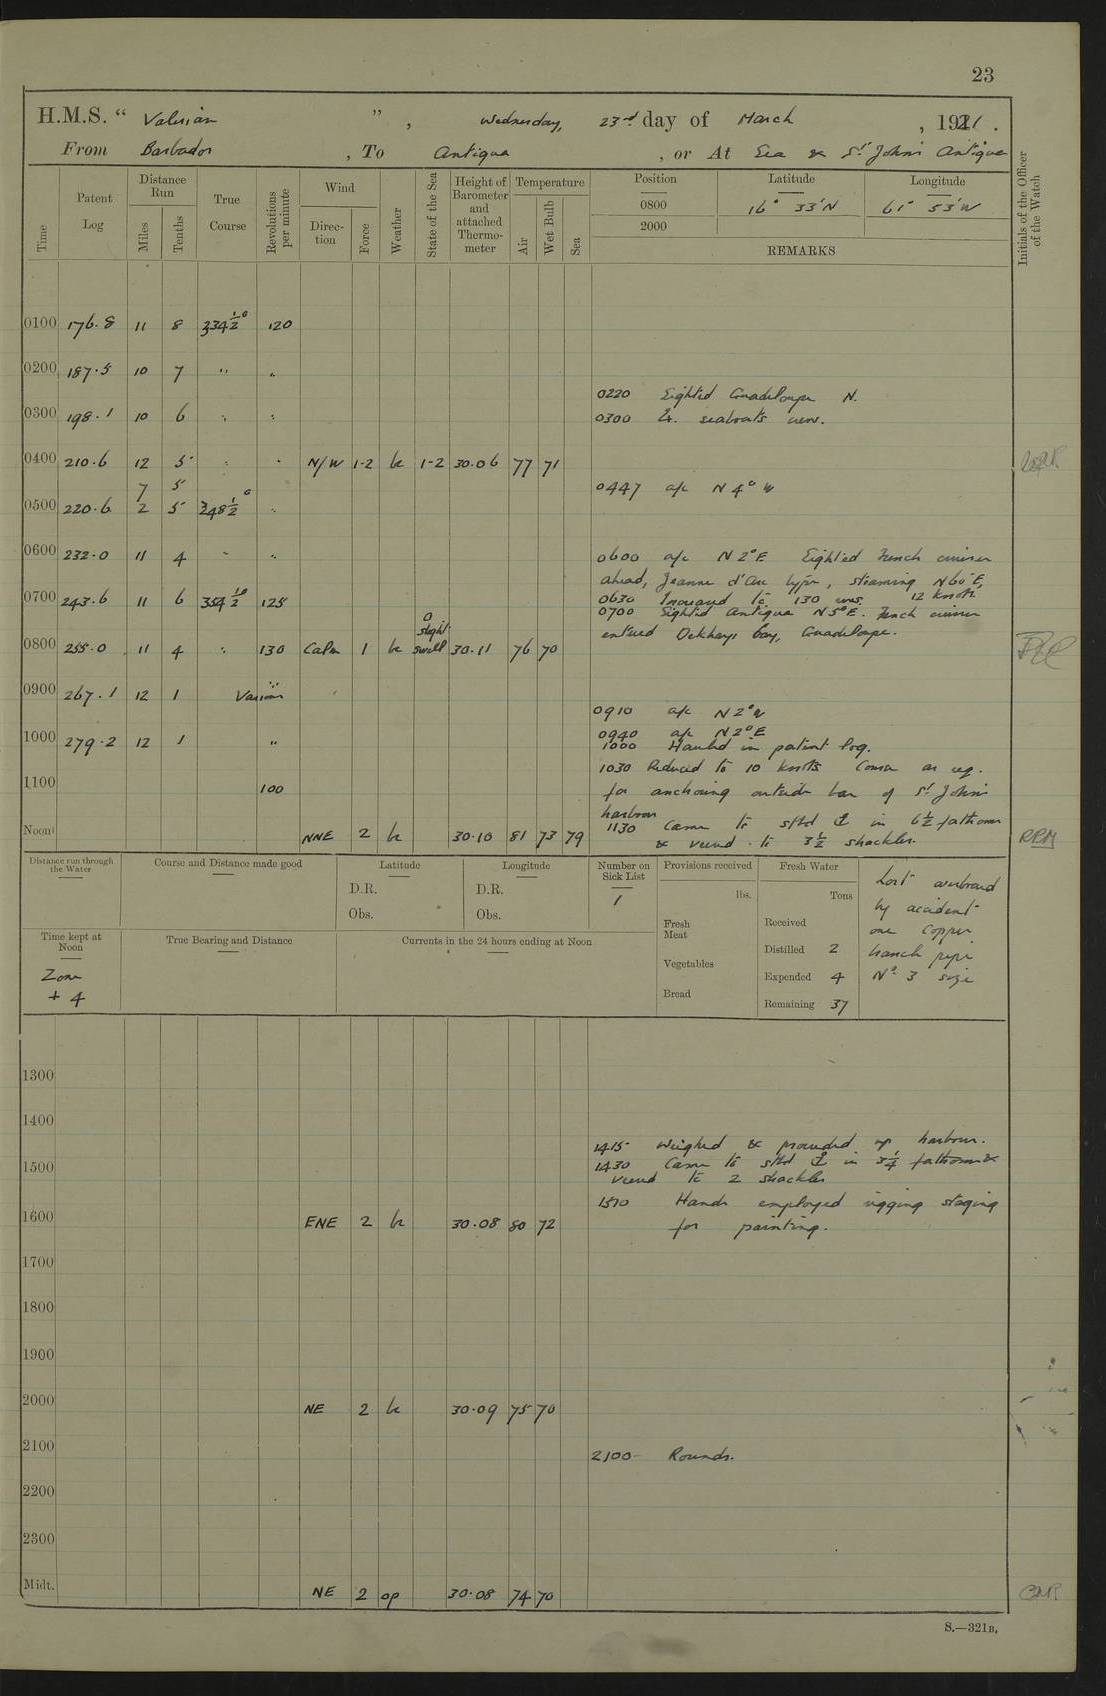 23
H.M.S. “ Valerian ” , Wednesday, 23rd day of March , 1921 .
From Barbados , To Antigua , or At Sea & St Johns Antigua
Time
Patent Log
Distance Run
Miles
Tenths
True Course
Revolutions per minute
Wind
Direction
Force
Weather
State of the Sea
Height of Barometer and attached Thermometer
Temperature
Air
Wet Bulb
Sea
Position
Latitude
Longitude
0800 16° 33'N 61° 53'W
2000
REMARKS
Initials of the Officer of the Watch
0100 176.8 11 8 334½° 120
0200 187.5 10 7 " "
0220 Sighted Guadeloupe N.
0300 198.1 10 6 " "
0300 Ex. seaboats crew.
0400 210.6 12 5 " " N/W 1-2 b 1-2 30.06 77 71
7 5
0447 a/c N 4° W
0500 220.6 2 5 348½° "
0600 232.0 11 4 " "
0600 a/c N 2° E Sighted French cruiser
ahead, Jeanne d'Arc type, steaming N60°E,
12 knots
0700 243.6 11 6 354½° 125
0630 Increased to 130 revs.
0700 Sighted Antigua N5°E. French cruiser
entered Bay, Guadeloupe.
0800 255.0 11 4 " 130 Calm 1 b 0 slight swell 30.11 76 70
0900 267.1 12 1 Various
0910 a/c N2°W
0940 a/c N2°E
1000 279.2 12 1 "
1000 Hauled in patent log.
1030 Reduced to 10 knots Course as req.
1100 100
for anchoring outside bar of St Johns
harbour
1130 Came to stbd ⚓ in 6½ fathoms
Noon NNE 2 b 30.10 81 73 79
& veered to 3½ shackles.
RRM
Distance run through the Water
Course and Distance made good
Latitude
D.R.
Obs.
Longitude
D.R.
Obs.
Number on Sick List
1
Provisions received
lbs.
Fresh Meat
Vegetables
Bread
Fresh Water
Tons
Received
Distilled 2
Expended 4
Remaining 37
Lost overboard
by accident
one copper
branch pipe
No 3 size
Time kept at Noon
Zone
+ 4
True Bearing and Distance
Currents in the 24 hours ending at Noon
1300
1400
1415 Weighed & proceeded up harbour.
1500
1430 Came to stbd ⚓ in 3¼ fathoms &
veered to 2 shackles
1510 Hands employed rigging staging
for painting.
1600 ENE 2 b 30.08 80 72
1700
1800
1900
2000 NE 2 b 30.09 75 70
2100
2100 Rounds.
2200
2300
Midt. NE 2 op 30.08 74 70
S.—321B.